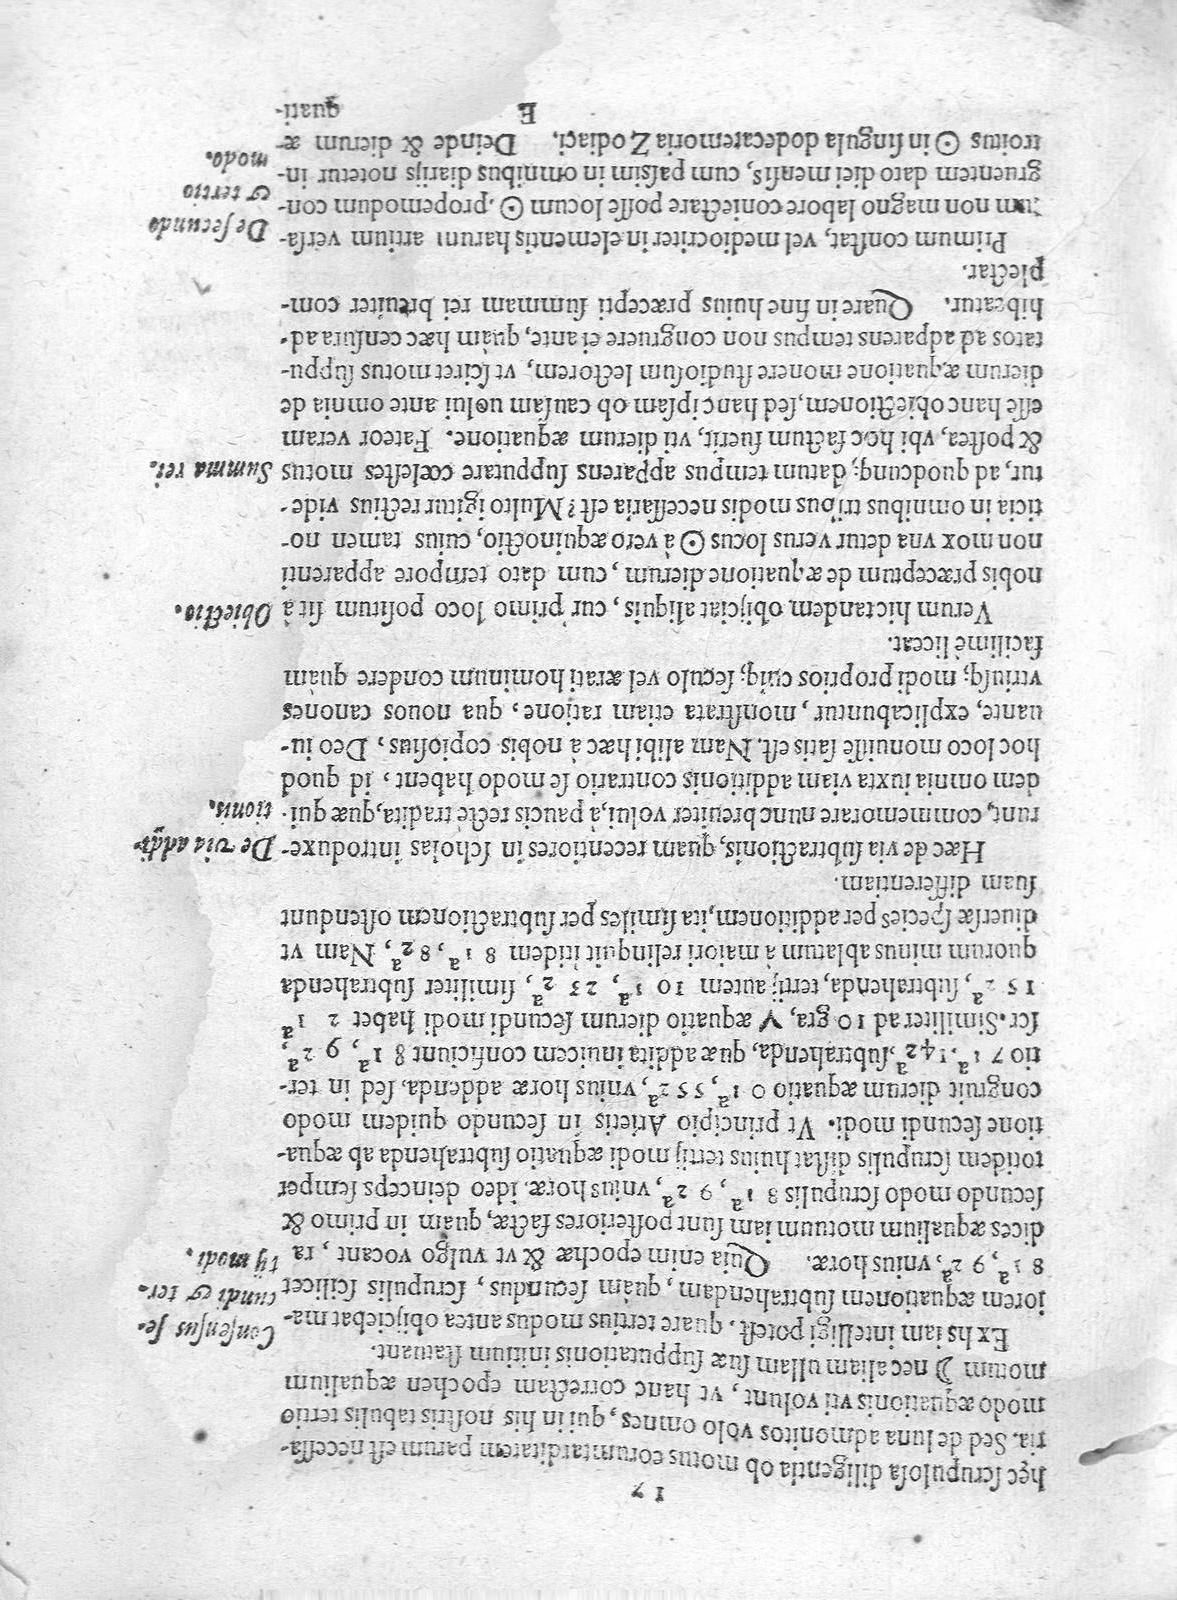 17
hęc ſcrupuloſa diligentia ob motus eorum tarditatem parum eſt neceſſa-
ria. Sed de luna admonitos volo omnes, qui in his noſtris tabulis tertio
modo æquationis vti volunt, vt hanc correctam epochen æqualium
motuum ☽ nec aliam ullam ſuæ ſupputationis initium ſtatuant.
Ex his iam intelligi poteſt, quare tertius modus antea obijciebat ma-
Conſenſus ſe-
iorem æquationem ſubtrahendam, quàm ſecundus, ſcrupulis ſcilicet
cundi & ter-
8 1ª, 9 2ª, vnius horæ. Quia enim epochæ & vt vulgo vocant, ra
tij modi.
dices æqualium motuum iam ſunt poſteriores factæ, quàm in primo &
ſecundo modo ſcrupulis 8 1ª, 9 2ª, vnius horæ. ideo deinceps ſemper
totidem ſcrupulis diſtat huius tertij modi æquatio ſubtrahenda ab æqua-
tione ſecundi modi. Vt principio Arietis in ſecundo quidem modo
congruit dierum æquatio 0 1ª, 55 2ª, vnius horæ addenda, ſed in ter-
tio 7 1ª, 14 2ª, ſubtrahenda, quæ addita inuicem conficiunt 8 1ª, 9 2ª,
ſcr. Similiter ad 10 gra, ♈ æquatio dierum ſecundi modi habet 2 1ª
15 2ª, ſubtrahenda, tertij autem 10 1ª, 23 2ª, ſimiliter ſubtrahenda
quorum minus ablatum à maiori relinquit itidem 8 1ª, 8 2ª, Nam vt
diuerſæ ſpecies per additionem, ita ſimiles per ſubtractionem oſtendunt
ſuam differentiam.
Hæc de via ſubtractionis, quam recentiores in ſcholas introduxe-
De via addi-
runt, commemorare nunc breuiter volui, à paucis recte tradita, quæ qui-
tionis.
dem omnia iuxta viam additionis contrario ſe modo habent, id quod
hoc loco monuiſſe ſatis eſt. Nam alibi hæc à nobis copioſius, Deo iu-
uante, explicabuntur, monſtrata etiam ratione, qua nouos canones
vtriuſq; modi proprios cuiq; ſeculo vel ætati hominum condere quàm
facilimè liceat.
Verum hic tandem obijciat aliquis, cur primo loco poſitum ſit à
Obiectio.
nobis præceptum de æquatione dierum, cum dato tempore apparenti
non mox vna detur verus locus ☉ à vero æquinoctio, cuius tamen no-
ticia in omnibus tribus modis neceſſaria eſt? Multo igitur rectius vide-
tur, ad quodcunq; datum tempus apparens ſupputare cœleſtes motus
Summa rei.
& poſtea, vbi hoc factum fuerit, vti dierum æquatione. Fateor veram
eſſe hanc obiectionem, ſed hanc ipſam ob cauſam uolui ante omnia de
dierum æquatione monere ſtudioſum lectorem, vt ſciret motus ſuppu-
tatos ad adparens tempus non congruere ei ante, quàm hæc cenſura ad-
hibeatur. Quare in fine huius præcepti ſummam rei breuiter com-
plectar.
Primum conſtat, vel mediocriter in elementis harum artium verſa-
De ſecundo
tum non magno labore coniectare poſſe locum ☉, propemodum con-
& tertio
gruentem dato diei menſis, cum paſsim in omnibus diarijs notetur in-
modo.
troitus ☉ in ſingula dodecatemoria Zodiaci. Deinde & dierum æ-
E
quati-